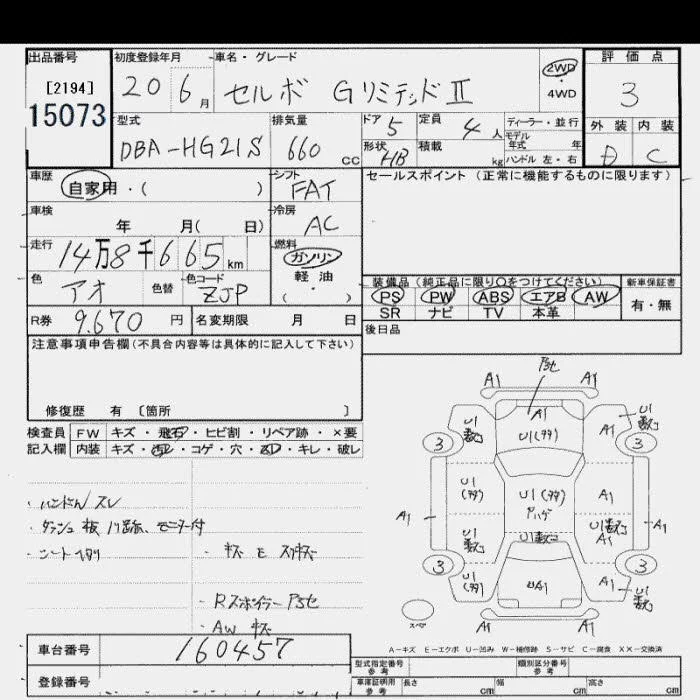 出品番号 初度登録年月 車名・グレード 評価点
[2194] 20 6月 セルボ Gリミテッド II 2WD 3
15073 ・4WD
型式 排気量 ドア 5 定員 4人 ディーラー・並行 外装 内装
DBA-HG21S 660cc 形状 HB 積載 kg モデル年式 年 D C
ハンドル 左・右
車歴 シフト セールスポイント(正常に機能するものに限ります)
自家用・( ) FAT
車検 冷房
年 月( 日) AC
走行 燃料
14万8千665km ガソリン
色 色替 色コード 軽油
アオ ZJP ( )
装備品(純正品に限り○をつけてください) 新車保証書
PS PW ABS エアB AW 有・無
SR ナビ TV 本革
R券 9.670円 名変期限 月 日 後日品
注意事項申告欄(不具合内容等は具体的に記入して下さい)
修復歴 有 〔箇所 〕
検査員 FW キズ・飛石・ヒビ割・リペア跡・×要
記入欄 内装 キズ・汚レ・コゲ・穴・スレ・キレ・破レ
・ハンドル スレ
モニター付
・シートヘタリ
・Rスポイラー アセ
・AW キズ
アセ
A1 A1
A1
U1(タタ)
A1
U1
3 3
U1(タタ) U1(タタ) A1
アハゲ
A1 A1
U1
A1
3 3
U1(タタ) UA1 A1
U1
スペア
A1 A1
A-キズ E-エクボ U-凹み W-補修跡 S-サビ C-腐食 XX-交換済
車台番号 160457
登録番号
型式指定番号 参考 類別区分番号 参考
車庫証明用 参考 長さ cm 幅 cm 高さ cm